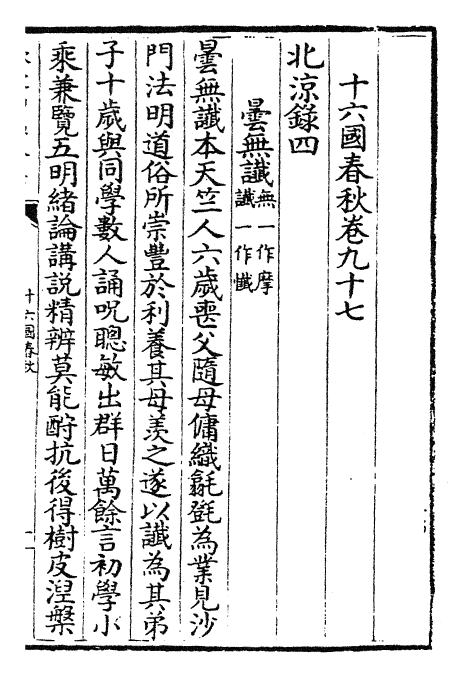 十六國春秋卷九十七
北涼錄四
曇無讖無一作摩
讖一作懺
曇無讖本天竺人六歲喪父隨母傭織毾㲪為業見沙
門法明道俗所崇豐於利養其母羨之遂以讖為其弟
子十歲與同學數人誦呪聰敏出群日萬餘言初學小
乘兼覽五明緒論講說精辨莫能酧抗後得樹皮涅槃
十六國春秋
一